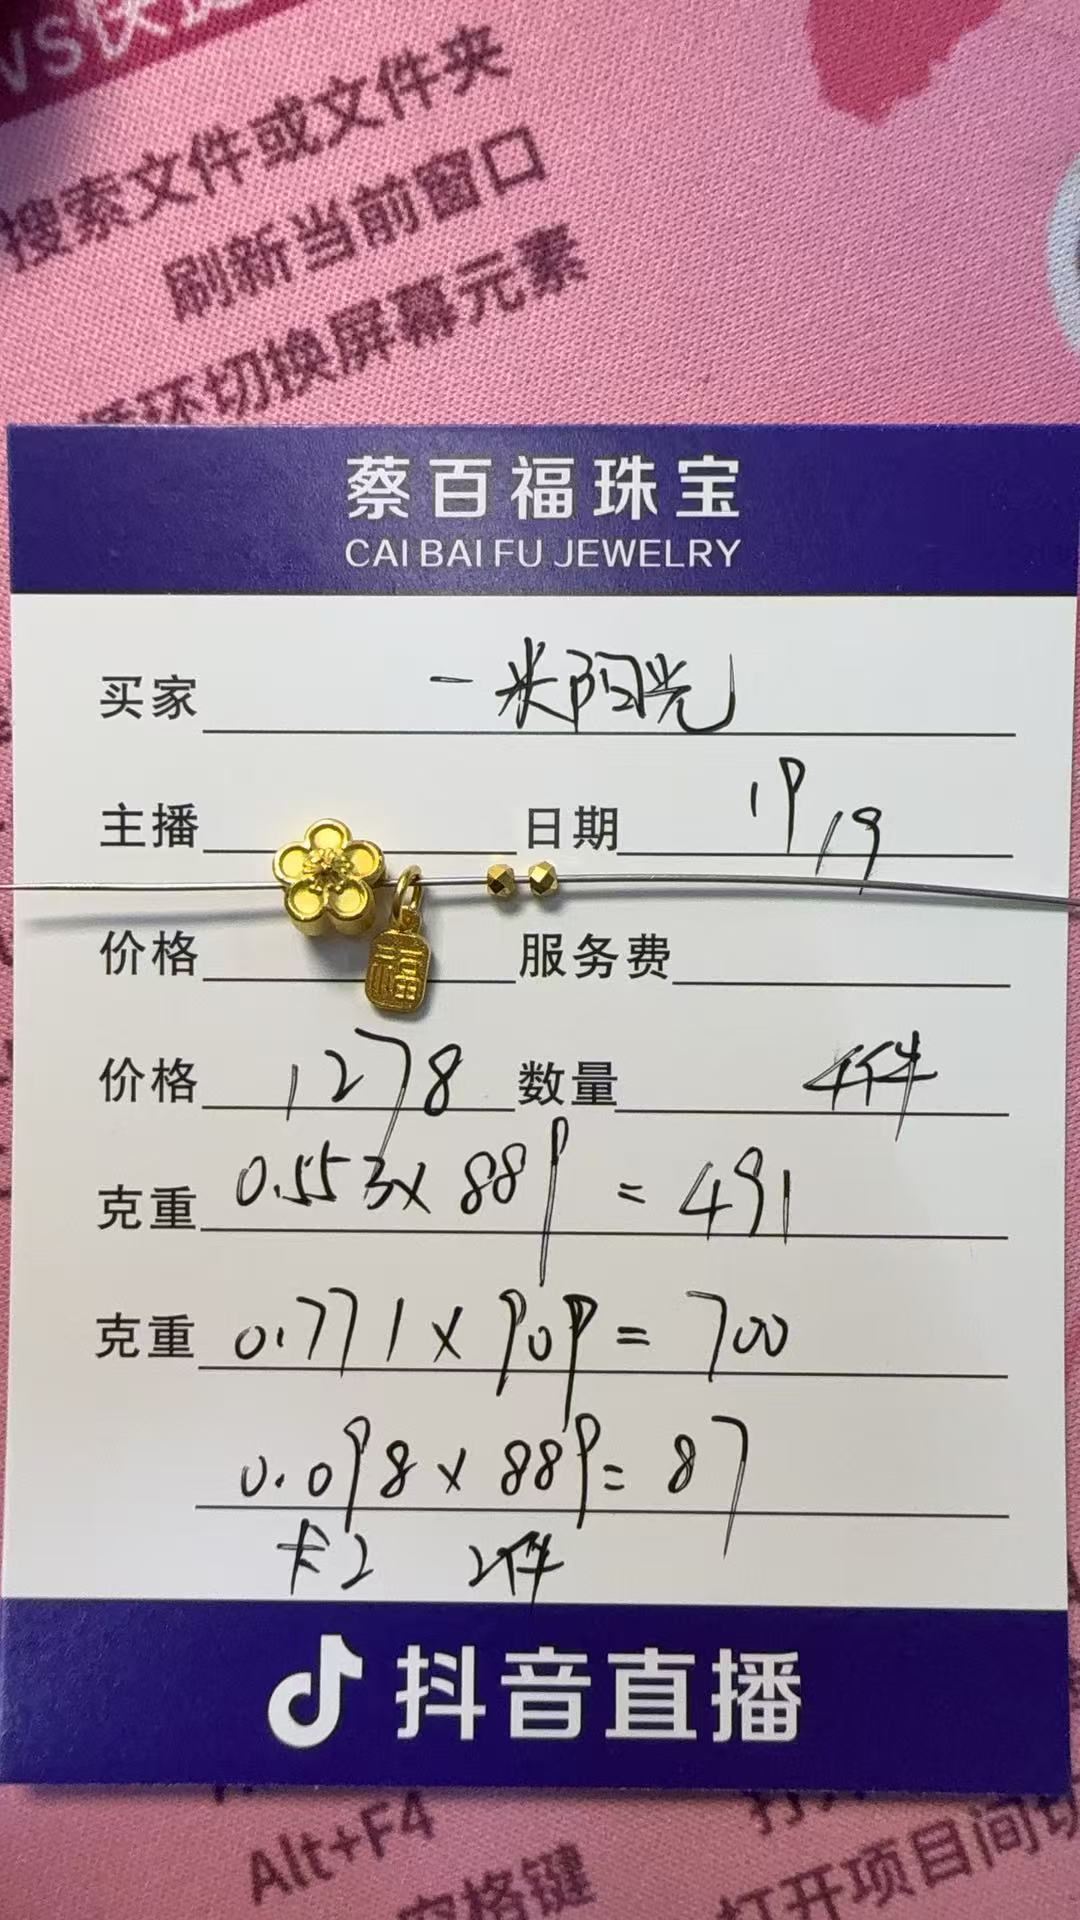 VS快
搜索文件或文件夹
刷新当前窗口
循环切换屏幕元素
蔡百福珠宝
CAI BAI FU JEWELRY
买家 一米阳光
主播 日期 19/19
福
价格 服务费
价格 1278 数量 4件
克重 0.553x 889 = 491
克重 0.771 x 909 = 700
0.098 x 889 = 87
卡2 2件
抖音直播
Alt+F4
打开
空格键
打开项目间切